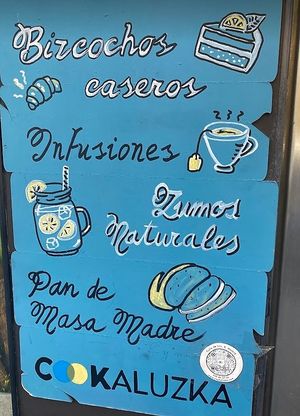 Bizcochos
caseros
Infusiones
Zumos
Naturales
Pan de
Masa Madre
COOKALUZKA